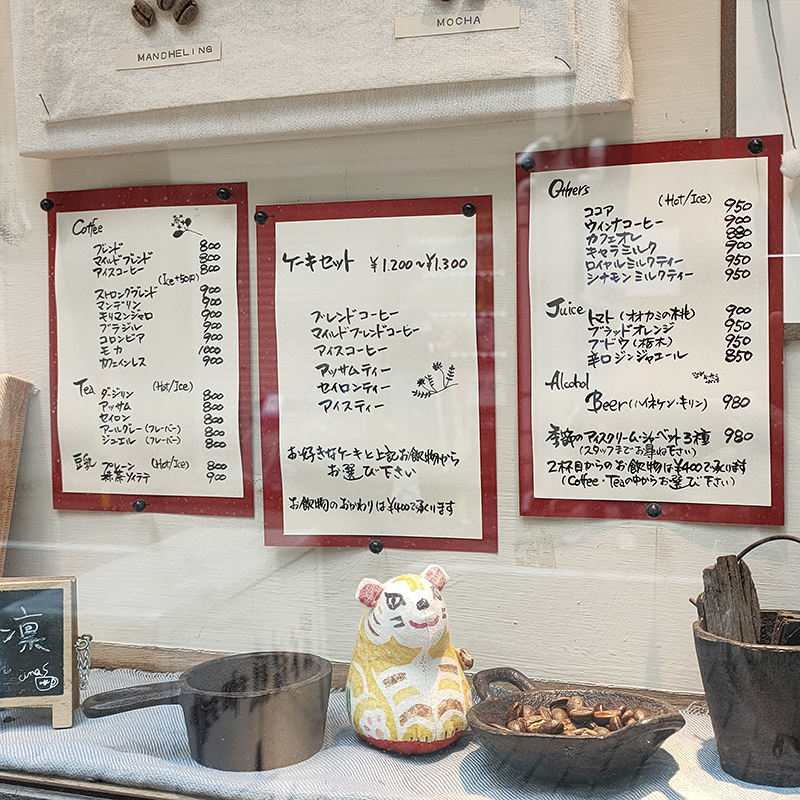 MANDHELING
MOCHA
Coffee
ブレンド 800
マイルドブレンド 800
アイスコーヒー 800
(Ice +50円)
ストロングブレンド 900
マンデリン 900
キリマンジャロ 900
ブラジル 900
コロンビア 900
モカ 1000
カフェインレス 900
Tea (Hot/Ice)
ダージリン 800
アッサム 800
セイロン 800
アールグレー(フレーバー) 800
ジュエル(フレーバー) 800
豆乳 (Hot/Ice)
プレーン 800
抹茶ソイラテ 900
ケーキセット ¥1.200~¥1.300
ブレンドコーヒー
マイルドブレンドコーヒー
アイスコーヒー
アッサムティー
セイロンティー
アイスティー
お好きなケーキと上記お飲物から
お選び下さい
お飲物のおかわりは¥400で承ります
Others (Hot/Ice)
ココア 950
ウィンナコーヒー 900
カフェオレ 880
キャラミルク 900
ロイヤルミルクティー 950
シナモンミルクティー 950
Juice
トマト(オオカミの桃) 900
ブラッドオレンジ 950
ブドウ(栃木) 950
辛口ジンジャエール 850
Alcohol
Beer(ハイネケン・キリン) 980
季節のアイスクリーム・シャーベット3種 980
(スタッフまでお尋ね下さい)
2杯目からのお飲物は¥400で承ります
(Coffee・Teaの中からお選び下さい)
凛